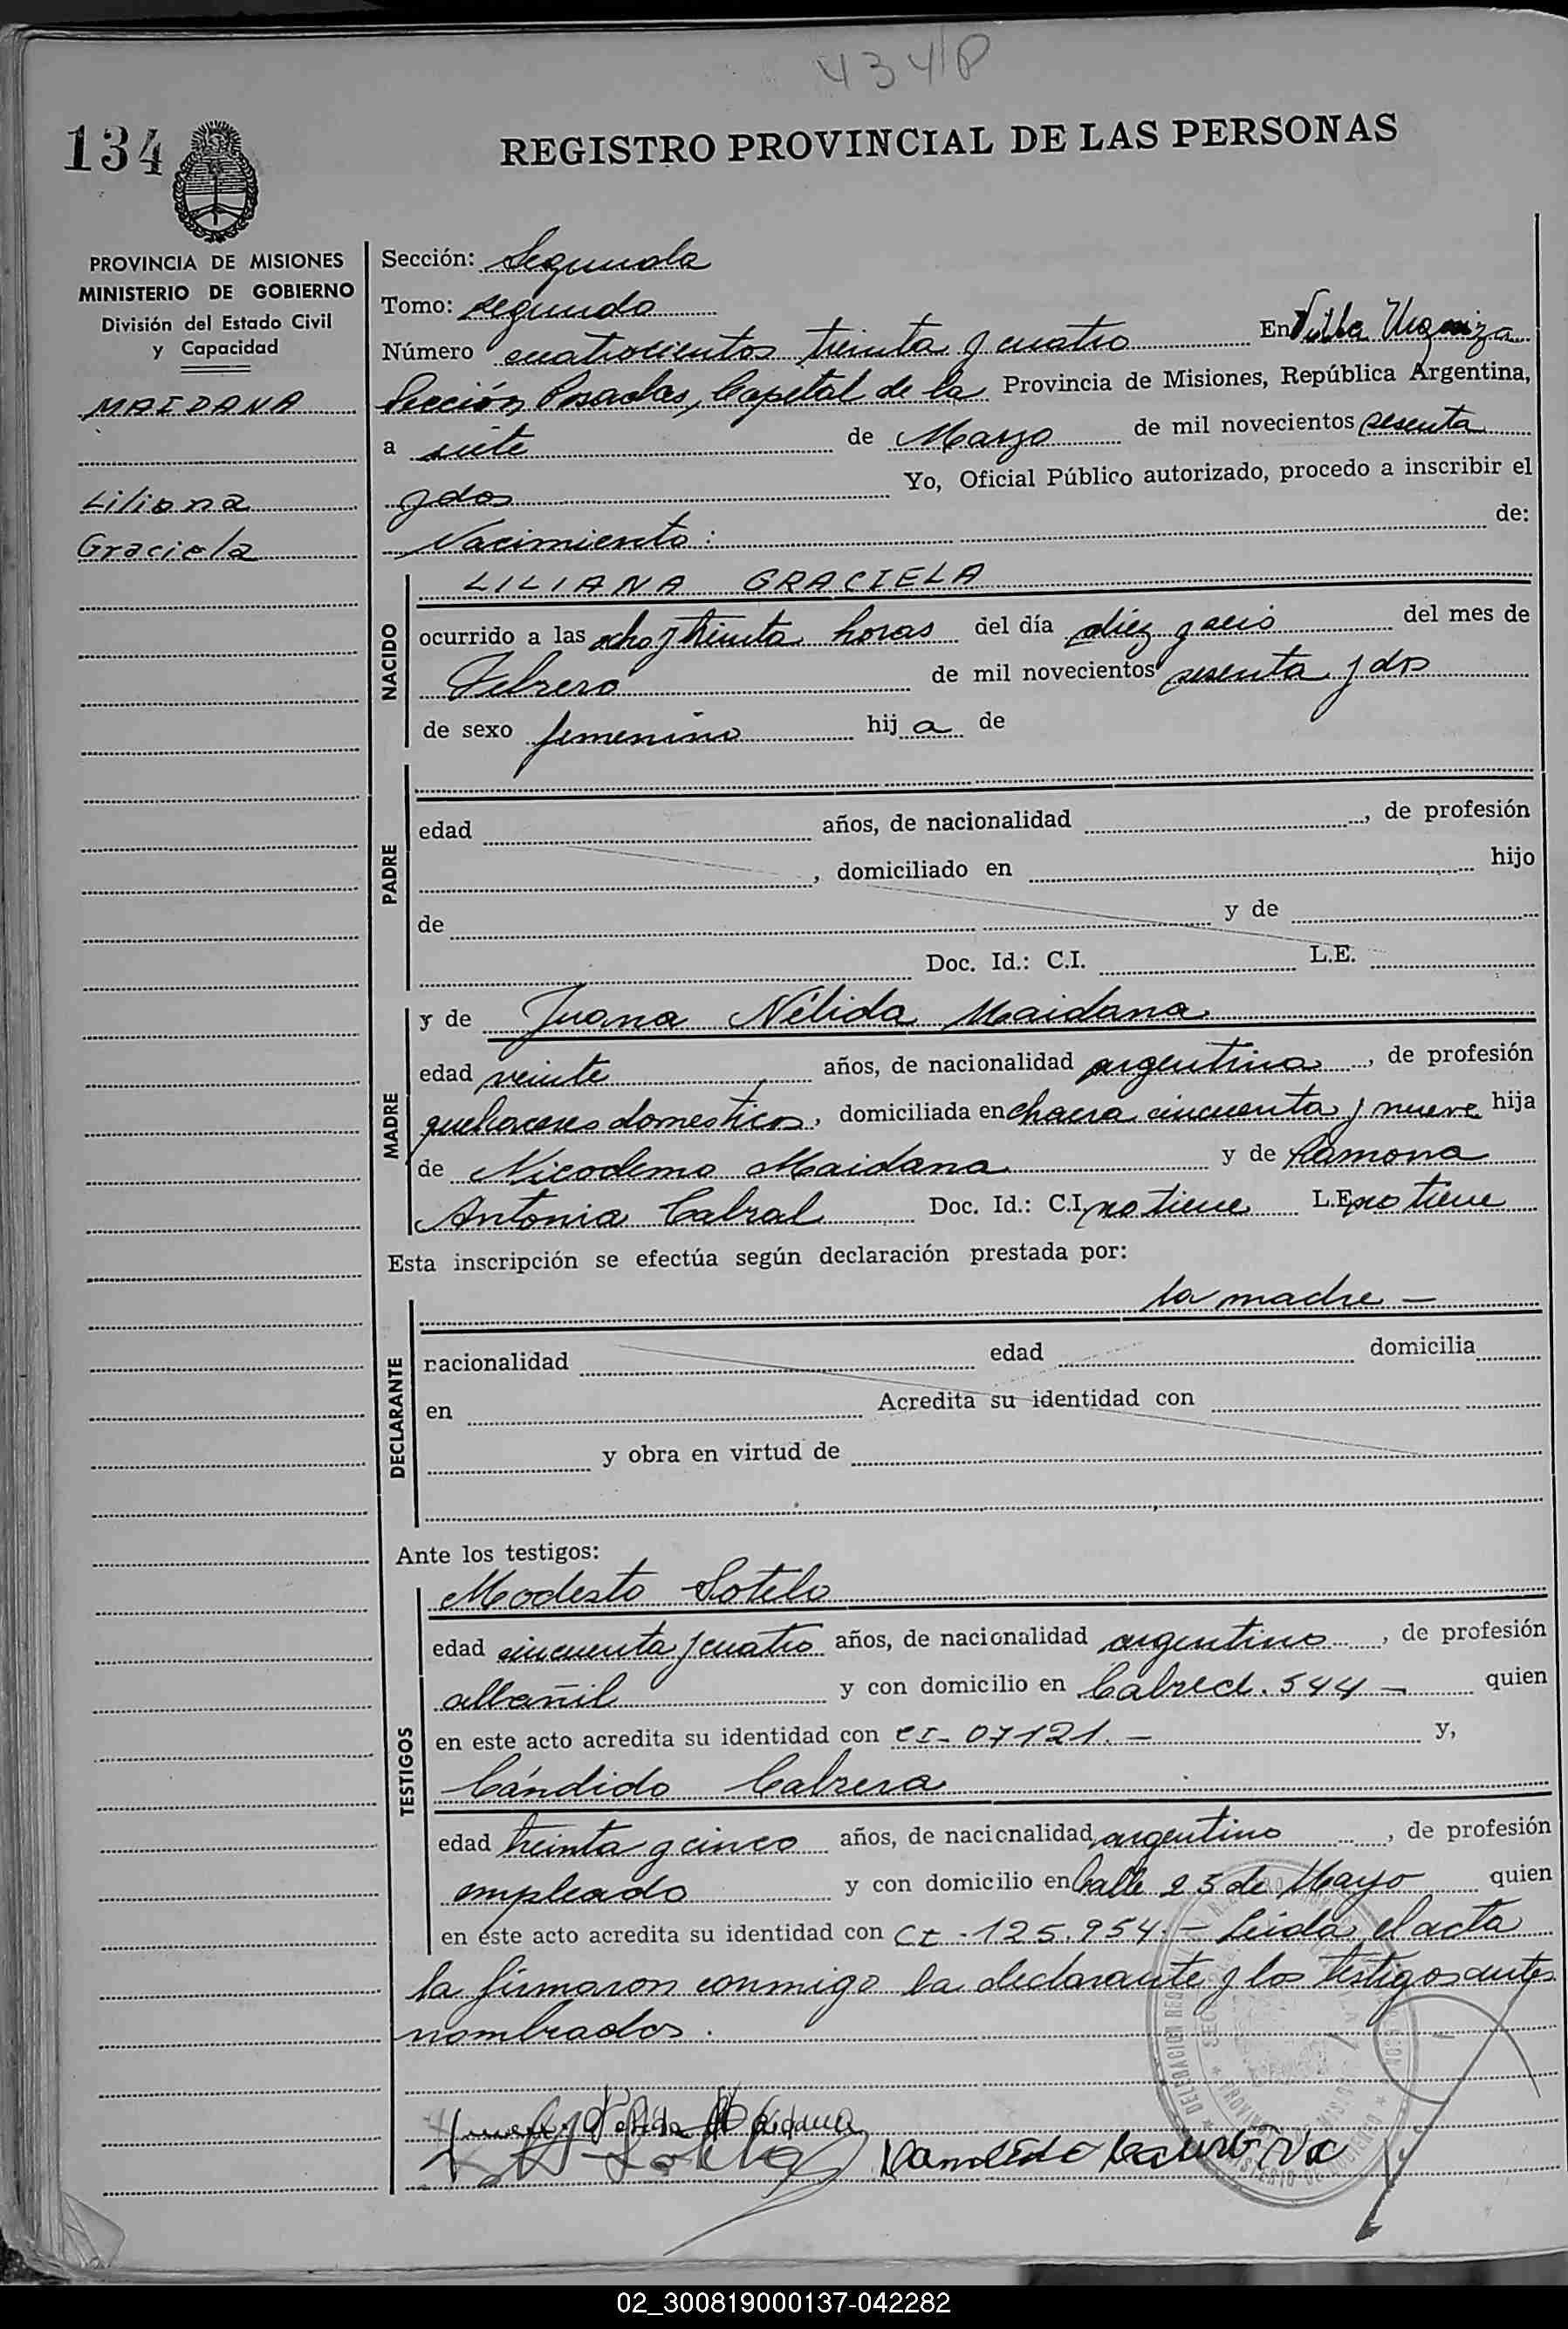 434/P
134
REGISTRO PROVINCIAL DE LAS PERSONAS
PROVINCIA DE MISIONES
MINISTERIO DE GOBIERNO
División del Estado Civil
y Capacidad
MAIDANA
Liliana
Graciela
Sección: Segunda
Tomo: segundo
Número cuatrocientos treinta y cuatro En Villa Urquiza
Sección Posadas, Capital de la Provincia de Misiones, República Argentina,
a siete de Marzo de mil novecientos sesenta
y dos Yo, Oficial Público autorizado, procedo a inscribir el
Nacimiento: de:
NACIDO
LILIANA GRACIELA
ocurrido a las ocho y treinta horas del día diez y seis del mes de
Febrero de mil novecientos sesenta y dos
de sexo femenino hij a de
PADRE
edad años, de nacionalidad , de profesión
, domiciliado en hijo
de y de
Doc. Id.: C.I. L.E.
MADRE
y de Juana Nélida Maidana
edad veinte años, de nacionalidad argentina, de profesión
quehaceres domesticos, domiciliada en chacra cincuenta y nueve hija
de Nicodemo Maidana y de Ramona
Antonia Cabral Doc. Id.: C.I. no tiene L.E. no tiene
Esta inscripción se efectúa según declaración prestada por:
DECLARANTE
la madre —
nacionalidad edad domicilia
en Acredita su identidad con
y obra en virtud de
Ante los testigos:
TESTIGOS
Modesto Sotelo
edad cincuenta y cuatro años, de nacionalidad argentino, de profesión
albañil y con domicilio en Cabred. 544 — quien
en este acto acredita su identidad con CI- 07121. — y,
Cándido Cabrera
edad treinta y cinco años, de nacionalidad argentino, de profesión
empleado y con domicilio en Calle 25 de Mayo quien
en este acto acredita su identidad con CI - 125.954. — Leida el acta
la firmaron conmigo la declarante y los testigos antes
nombrados.
Nelida Maidana
Sotelo
02_300819000137-042282